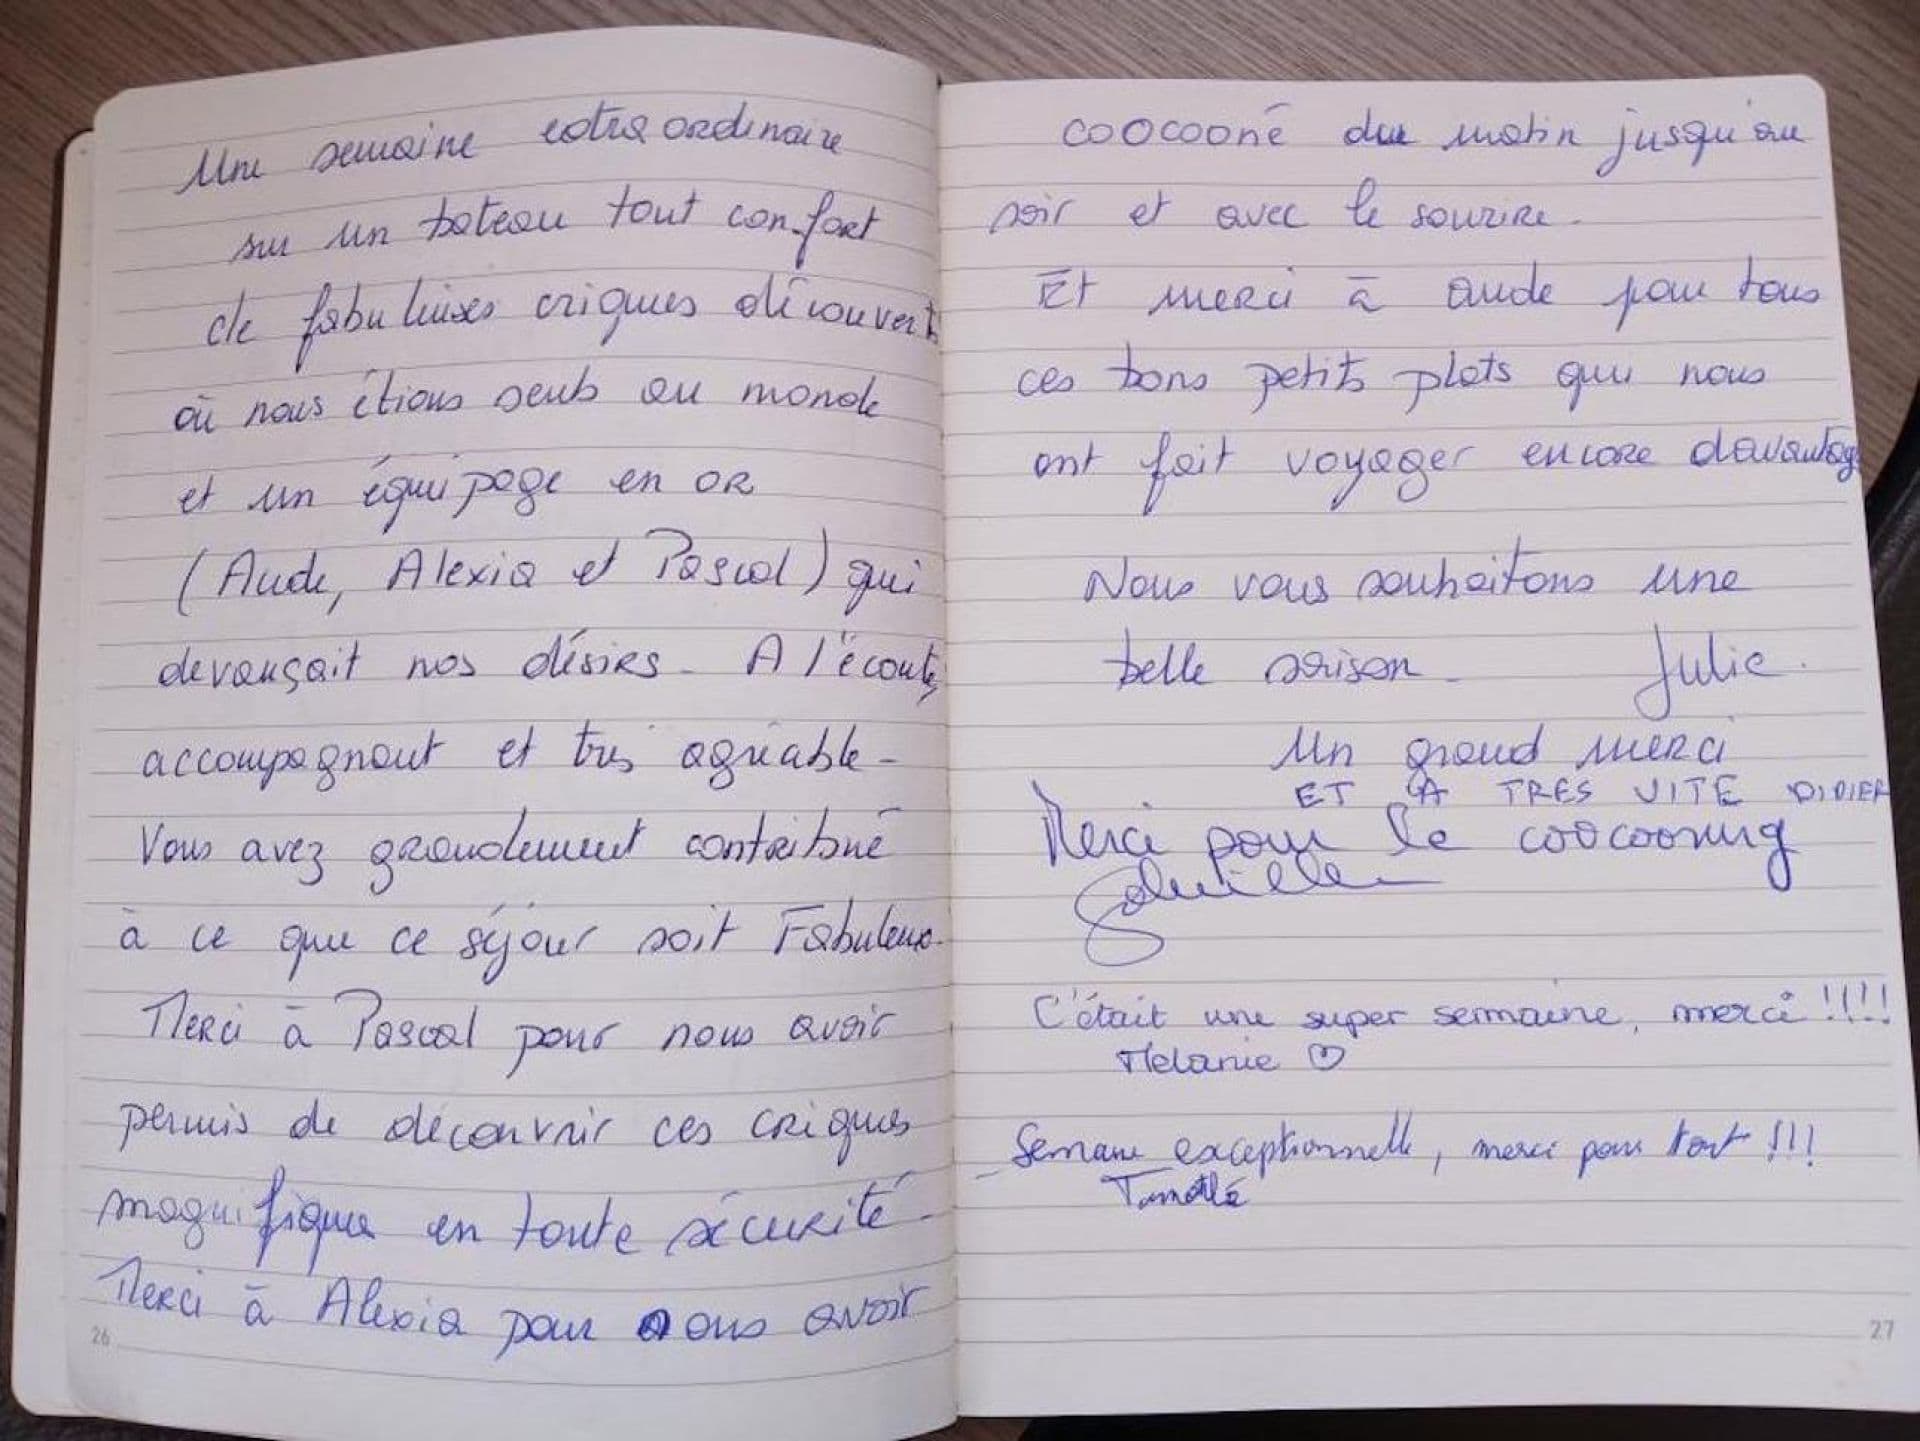 Une semaine extraordinaire
sur un bateau tout confort
de fabuleuses criques découvertes
où nous étions seuls au monde
et un équipage en OR
(Aude, Alexia et Pascal) qui
devançait nos désirs. A l'écoute,
accompagnant et très agréable.
Vous avez grandement contribué
à ce que ce séjour soit Fabuleux.
Merci à Pascal pour nous avoir
permis de découvrir ces criques
magnifiques en toute sécurité.
Merci à Alexia pour nous avoir
26
coocooné du matin jusqu'au
soir et avec le sourire.
Et merci à aude pour tous
ces bons petits plats qui nous
ont fait voyager encore davantage
Nous vous souhaitons une
belle saison. Julie.
Un grand merci
ET A TRES VITE DIDIER
Merci pour le coocooning
C'était une super semaine, merci !!!!
Mélanie ♡
Semaine exceptionnelle, merci pour tout !!!
Timothé
27